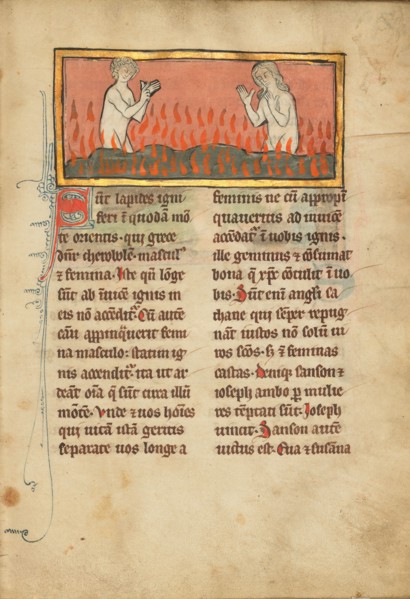 Sūt lapides igni
feri ī quodā mō
te orientis· qui grece
dn̄r chewolēn· mascul᷒
⁊ femina· Iste qn̄ lōge
sūt ab īuicē ignis in
eis nō accēdit᷑· Cū autē
casu appīquerit femi
na masculo· statim ig
nis accendit᷑· ita ut ar
deāt oīa q̄ sūt circa illū
mōtē· Vnde ⁊ uos hoīes
qui uitā istā geritis
separate uos longe a
feminis ne cū appropī
quaueritis ad inuicē
accēdat᷑ ī uobis ignis·
ille geminus ⁊ cōsumat
bona q̄ xp̄c cōtulit ī uo
bis· Sūt enī angl̄i sa
thane qui sēper repug
nāt iustos nō solū ui
ros sc̄os· sꝫ ⁊ feminas
castas· Deniq; sanson ⁊
ioseph ambo ꝑ mulie
res tēptati sūt· Joseph
uincit· Sanson autē
uictus est· Eua ⁊ susāna